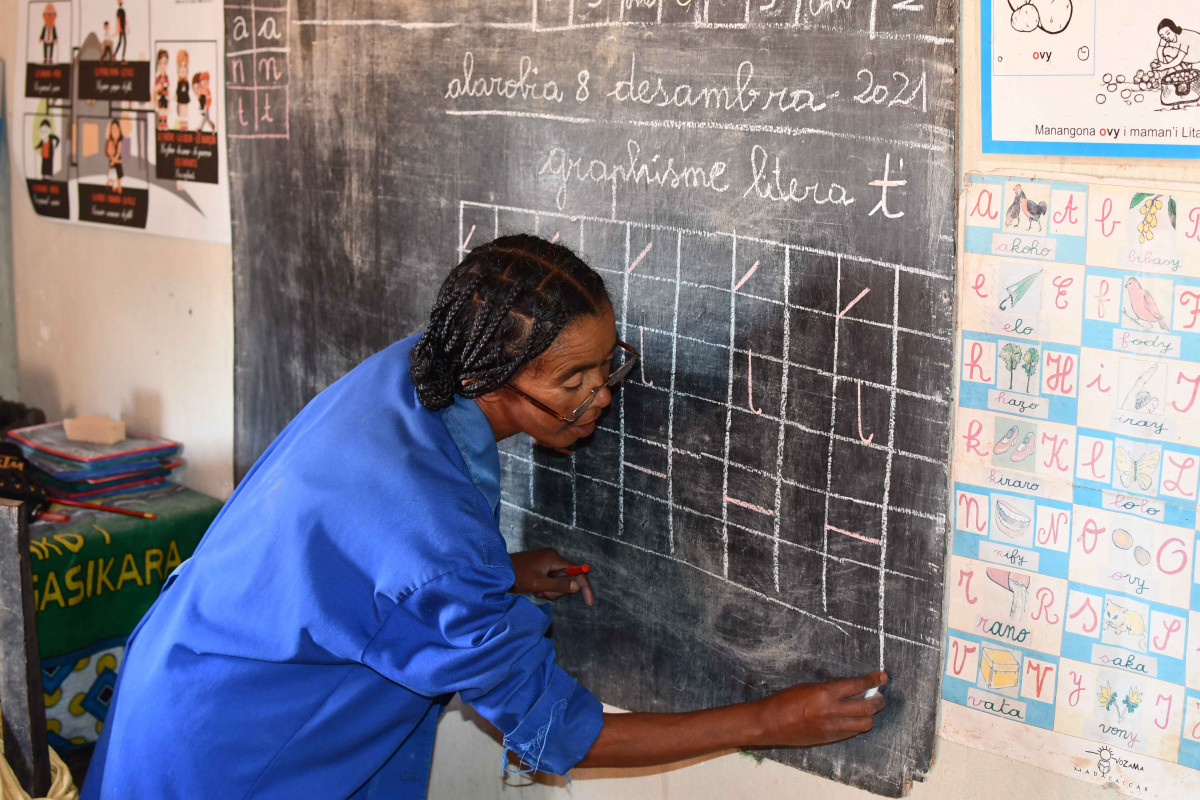 a a
n n
t t
alarobia 8 desambra 2021
graphisme litera t
ovy
Manangona ovy i maman'i Lita
a A
akoho
b
bibasy
e E
elo
f F
fody
h H
hazo
i
iray
k K
kiraro
l L
lolo
n N
nify
o O
ovy
r R
rano
s S
saka
v V
vata
y
vony
VOZAMA
MADAGASCAR
GASIKARA